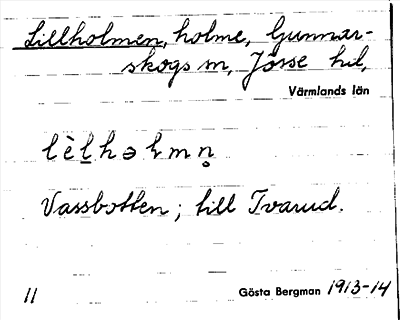 Lillholmen, holme, Gunnar-
skogs sn, Jösse hd,
Värmlands län
lèl̲həɫmn̥
Vassbotten; till Tvarud.
11 Gösta Bergman 1913-14